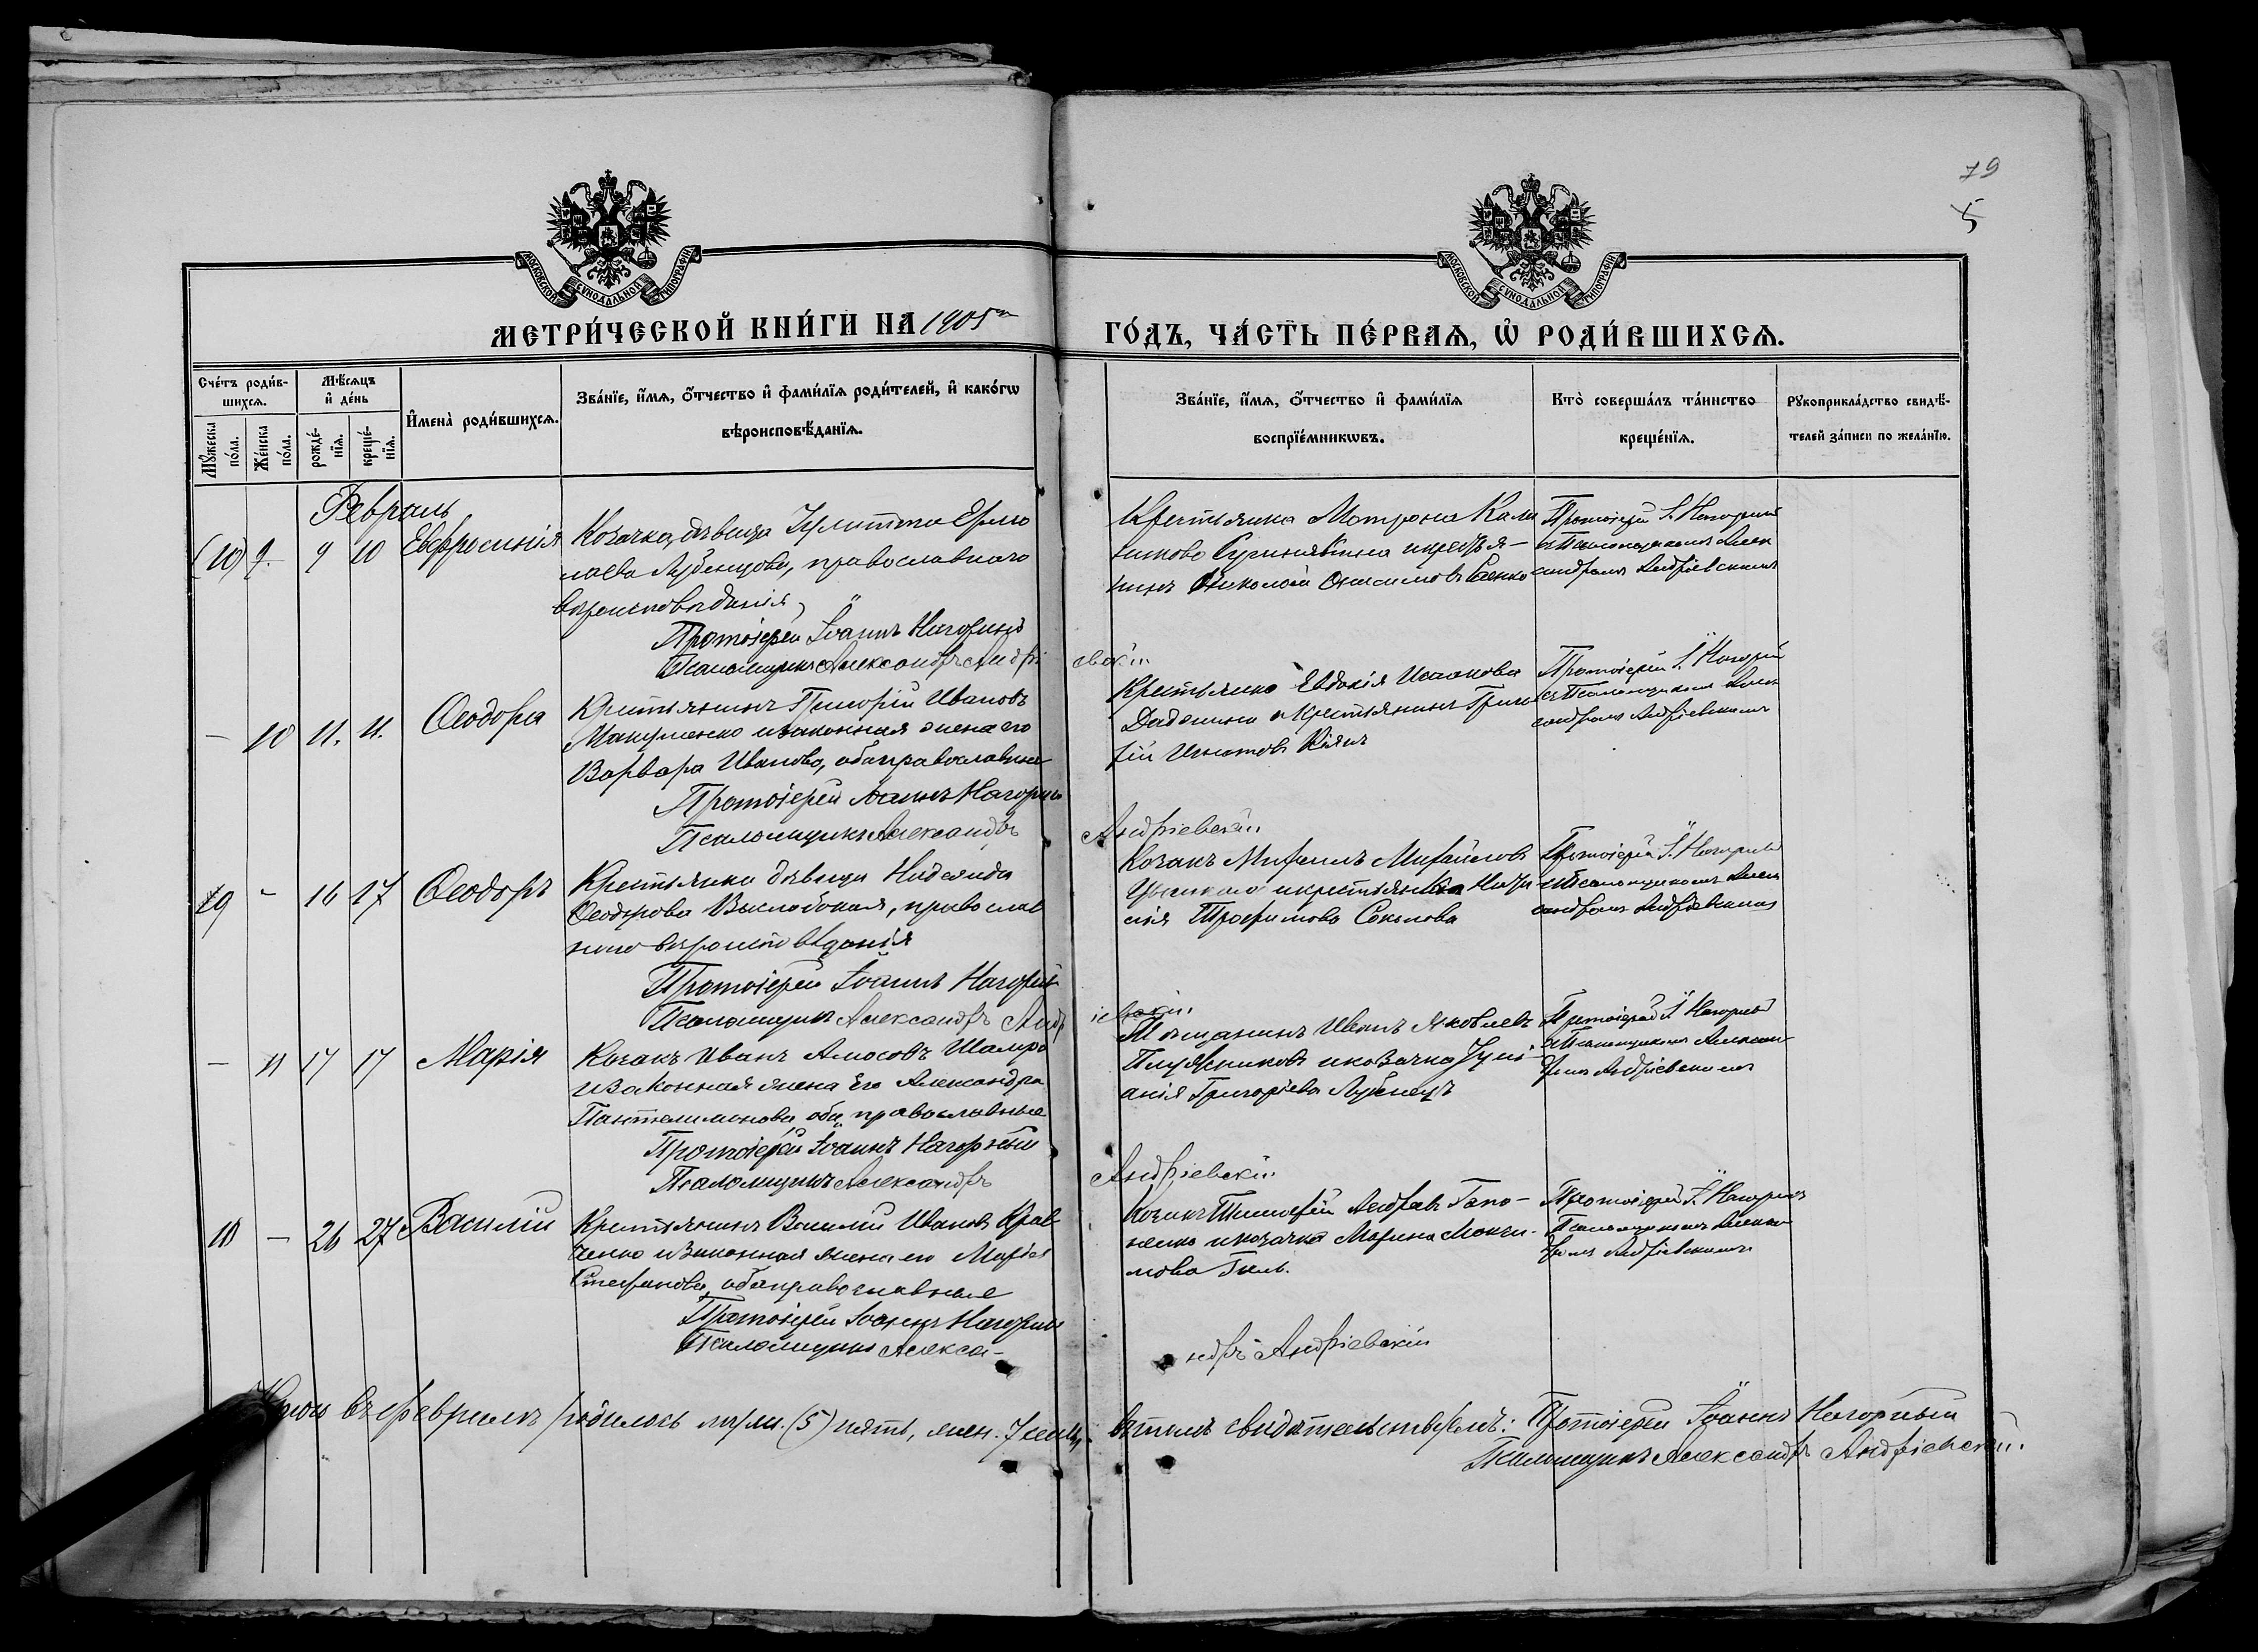 79
5
МОСКОВСКОЙ СУНОДАЛЬНОЙ ТИПОГРАФІИ
МОСКОВСКОЙ СУНОДАЛЬНОЙ ТИПОГРАФІИ
МЕТРИ́ЧЕСКОЙ КНИ́ГИ НА 1905
ГО́ДЪ, ЧА́СТЬ ПЕ́РВАѦ, Ѡ҆ РОДИ́ВШИХСѦ.
Сче́тъ роди́в-
шихсѧ.
Мѣ́сѧцъ
и҆ де́нь
И҆мена̀ роди́вшихсѧ.
Зва́нїе, и҆́мѧ, ѻ҆́тчество и҆ фами́лїѧ роди́телей, и҆ како́гѡ
вѣроисповѣ́данїѧ.
Мꙋ́жеска
по́ла.
Же́нска
по́ла.
рожде́-
нїѧ.
креще́-
нїѧ.
Зва́нїе, и҆́мѧ, ѻ҆́тчество и҆ фами́лїѧ
воспрїе́мникѡвъ.
Кто̀ соверша́лъ та́инство
креще́нїѧ.
Рꙋкоприкла́дство свидѣ́-
телей за́писи по жела́нїю.
Февраль
(10) 9. 9 10 Евфросинія
Козачка, дѣвица Ермо
лаева Лубенцова, православнаго
вѣроисповѣданія
Протоіерей Іоаннъ Нагорный
Псаломщикъ Александръ Андрі
Крестьянка Матрона Кали
никова и крестья-
нинъ Николай Онисимовъ
Протоіерей І. Нагорный
съ Псаломщикомъ Алек
сандромъ Андріевскимъ
евскій
— 10 11. 11. Ѳеодора
Крестьянинъ Григорій Ивановъ
Макуменко и законная жена его
Варвара Иванова, оба православные
Протоіерей Іоаннъ Нагорный
Псаломщикъ Александръ
Крестьянка Евдокія Исаакова
и крестьянинъ Григо
рій Игнатовъ Кіянъ
Протоіерей І. Нагорный
съ Псаломщикомъ Алек
сандромъ Андріевскимъ
Андріевскій
9 - 16 17 Ѳеодоръ
Крестьянка дѣвица Надежда
Ѳеодорова Выслобокая, православ
наго вѣроисповѣданія
Протоіерей Іоаннъ Нагорный
Псаломщикъ Александръ Андр
Козакъ Михаилъ Михайловъ
и крестьянка
Трофимова Соколова
Протоіерей І. Нагорный
съ Псаломщикомъ Алек
сандромъ Андріевскимъ
іевскій
— 11 17 17 Марія
Козакъ Иванъ Амосовъ Шапро
и законная жена его Александра
Пантелимонова оба православные
Протоіерей Іоаннъ Нагорный
Псаломщикъ Александръ
Мѣщанинъ Иванъ Яковлевъ
и козачка Іулі-
анія Григоріева Лубенецъ
Протоіерей І. Нагорный
съ Псаломщикомъ Алексан-
дромъ Андріевскимъ
Андріевскій
10 — 26 27 Василій
Крестьянинъ Василій Ивановъ Крав
ченко и законная жена его Марія
Стефанова, оба православные
Протоіерей Іоаннъ Нагорный
Псаломщикъ Алекса-
Козакъ Тимофій Андреевъ Гапо-
ненко и козачка Марина Макси-
мова
Протоіерей І. Нагорный
Псаломщикомъ Алексан
дромъ Андріевскимъ
ндръ Андріевскій
въ февралѣ родилось муж. (5) пять, жен. 7 семь,
въ томъ свидѣтельствуемъ: Протоіерей Іоаннъ Нагорный
Псаломщикъ Александръ Андріевскій.